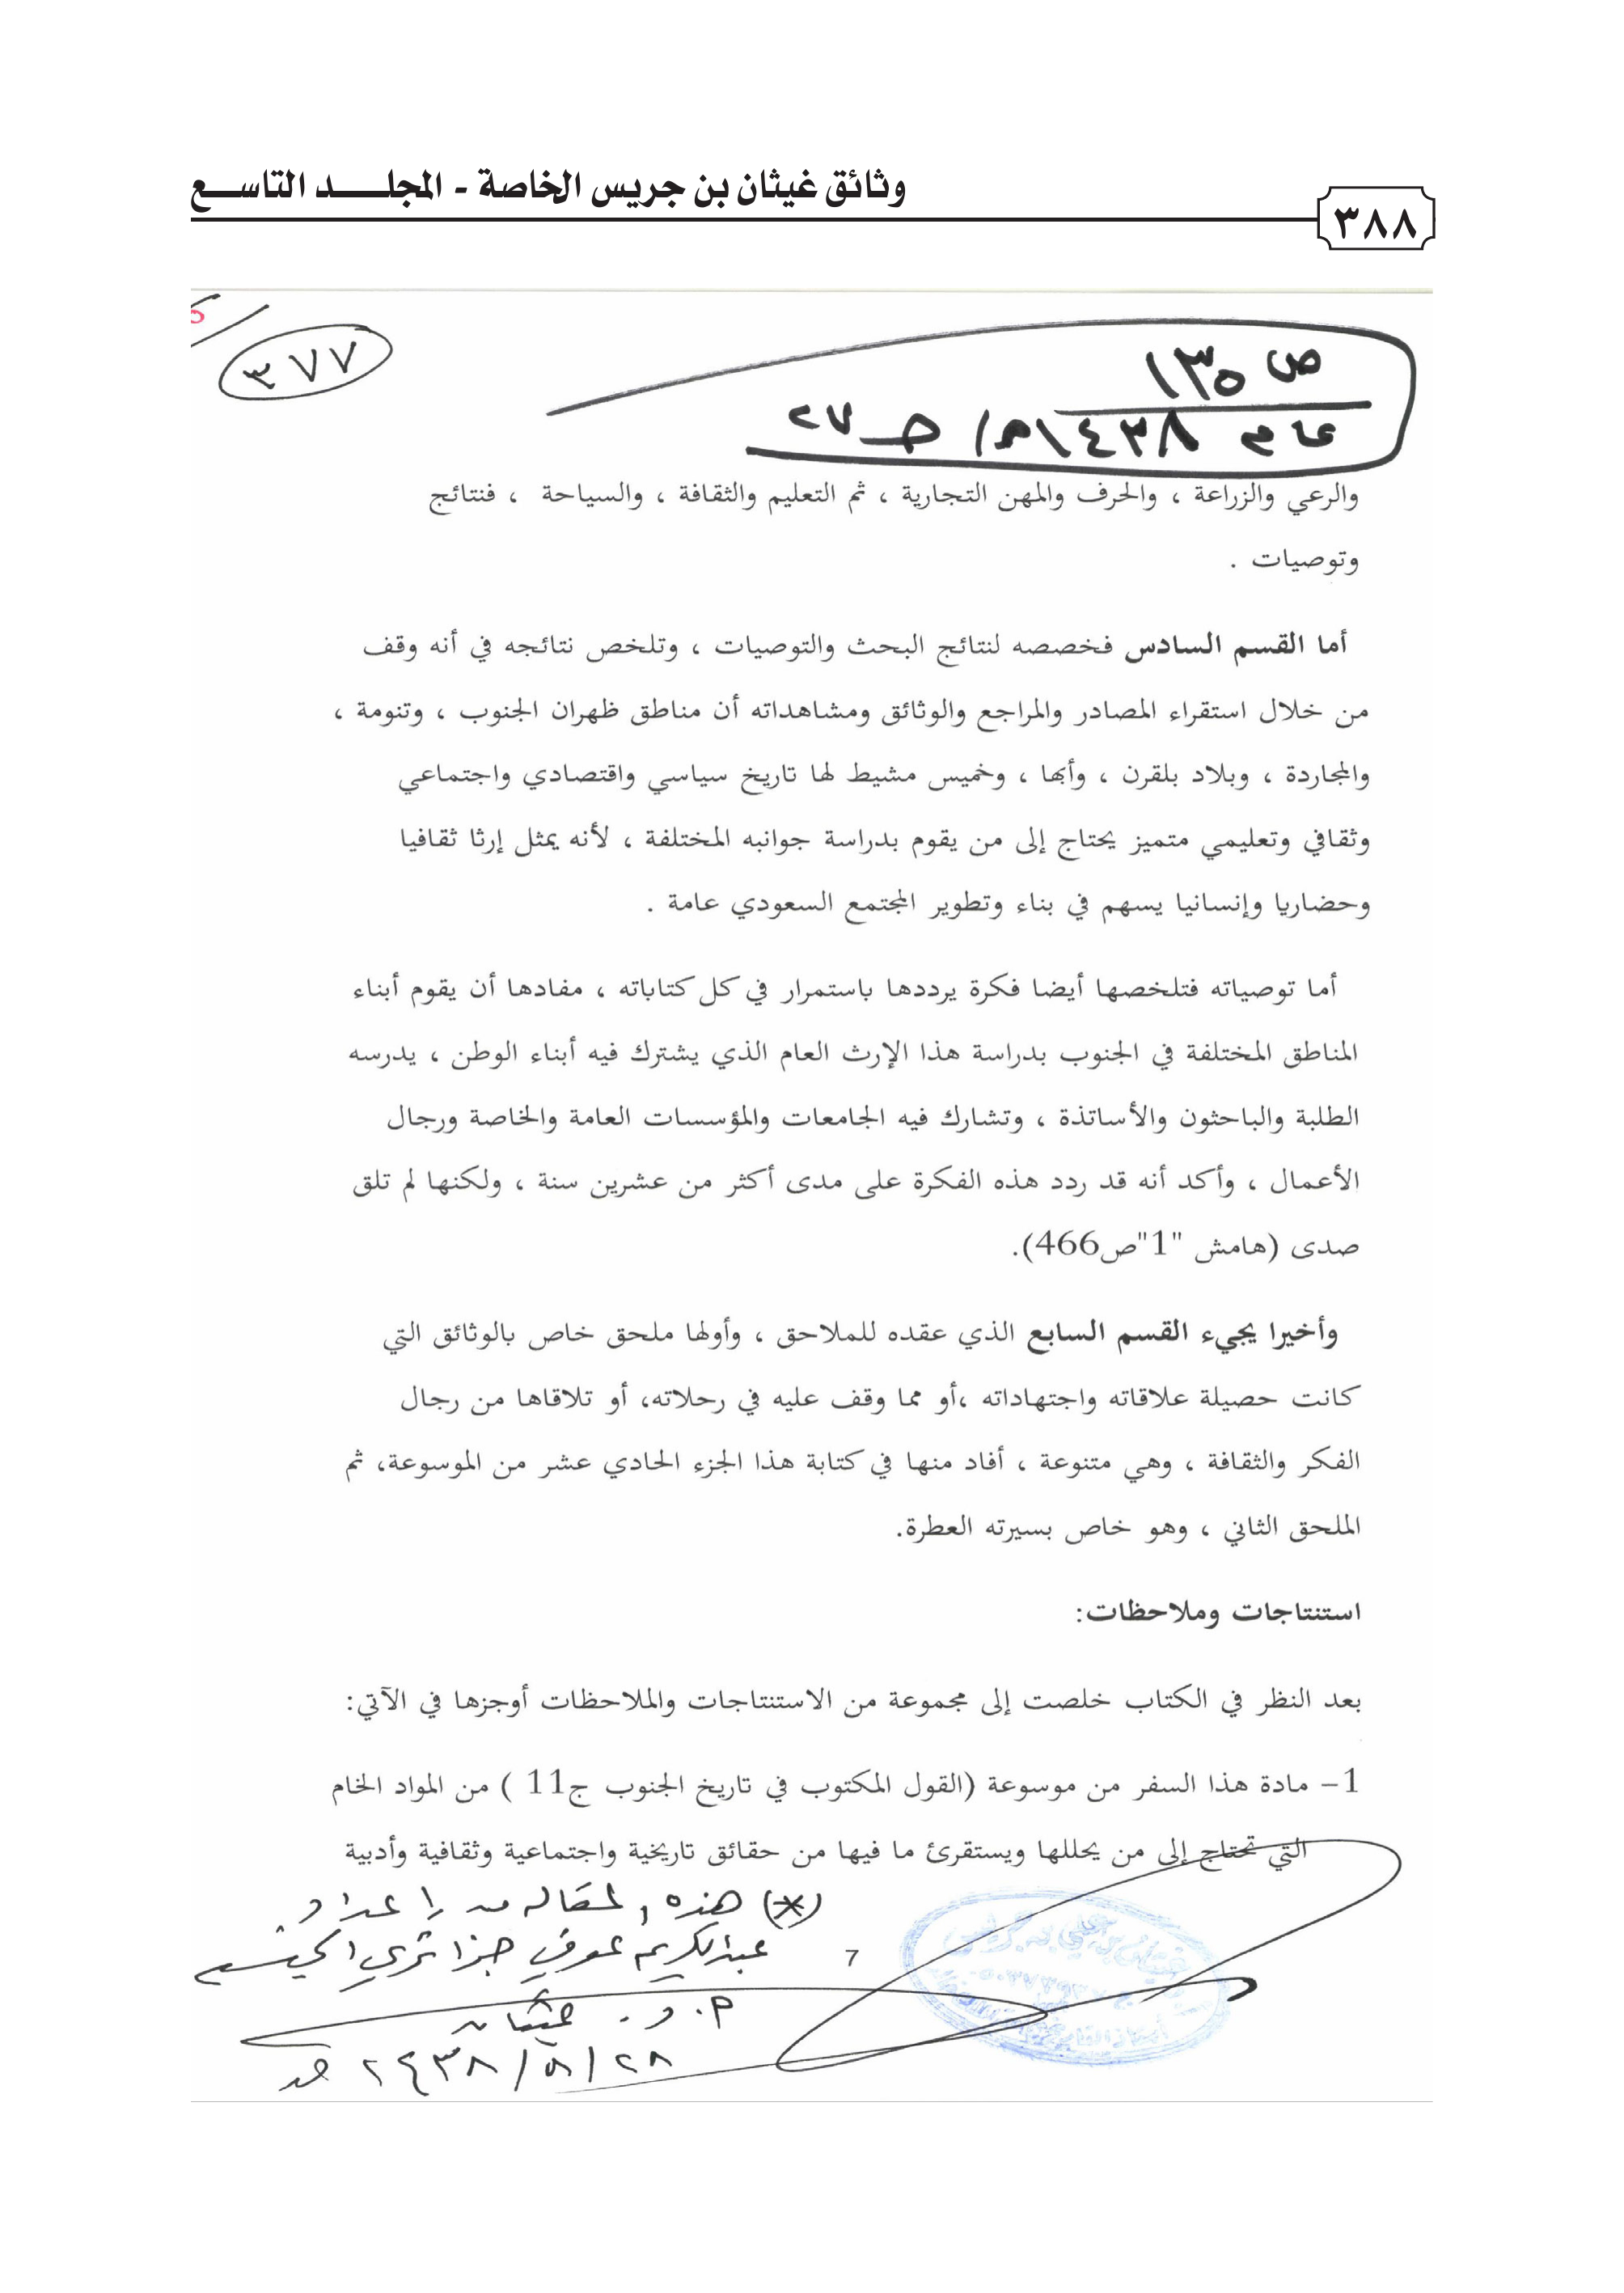 وثائق غيثان بن جريس الخاصة - المجلــــد التاســـع
٣٨٨
٣٧٧
ص ١٣٥
عام ١٤٣٨هـ/ جـ ٢٧
والرعي والزراعة ، والحرف والمهن التجارية ، ثم التعليم والثقافة ، والسياحة ، فنتائج
وتوصيات .
أما القسم السادس فخصصه لنتائج البحث والتوصيات ، وتلخص نتائجه في أنه وقف
من خلال استقراء المصادر والمراجع والوثائق ومشاهداته أن مناطق ظهران الجنوب ، وتنومة ،
والمجاردة ، وبلاد بلقرن ، وأبها ، وخميس مشيط لها تاريخ سياسي واقتصادي واجتماعي
وثقافي وتعليمي متميز يحتاج إلى من يقوم بدراسة جوانبه المختلفة ، لأنه يمثل إرثا ثقافيا
وحضاريا وإنسانيا يسهم في بناء وتطوير المجتمع السعودي عامة .
أما توصياته فتلخصها أيضا فكرة يرددها باستمرار في كل كتاباته ، مفادها أن يقوم أبناء
المناطق المختلفة في الجنوب بدراسة هذا الإرث العام الذي يشترك فيه أبناء الوطن ، يدرسه
الطلبة والباحثون والأساتذة ، وتشارك فيه الجامعات والمؤسسات العامة والخاصة ورجال
الأعمال ، وأكد أنه قد ردد هذه الفكرة على مدى أكثر من عشرين سنة ، ولكنها لم تلق
صدى (هامش "1"ص466).
وأخيرا يجيء القسم السابع الذي عقده للملاحق ، وأولها ملحق خاص بالوثائق التي
كانت حصيلة علاقاته واجتهاداته ،أو مما وقف عليه في رحلاته، أو تلاقاها من رجال
الفكر والثقافة ، وهي متنوعة ، أفاد منها في كتابة هذا الجزء الحادي عشر من الموسوعة، ثم
الملحق الثاني ، وهو خاص بسيرته العطرة.
استنتاجات وملاحظات:
بعد النظر في الكتاب خلصت إلى مجموعة من الاستنتاجات والملاحظات أوجزها في الآتي:
1- مادة هذا السفر من موسوعة (القول المكتوب في تاريخ الجنوب ج11 ) من المواد الخام
التي تحتاج إلى من يحللها ويستقرئ ما فيها من حقائق تاريخية واجتماعية وثقافية وأدبية
(*) هذه المقاله من إعداد
عبدالكريم عوفي جزائري الجنسيه
7
٢٨/ ٨/ ١٤٣٨هـ